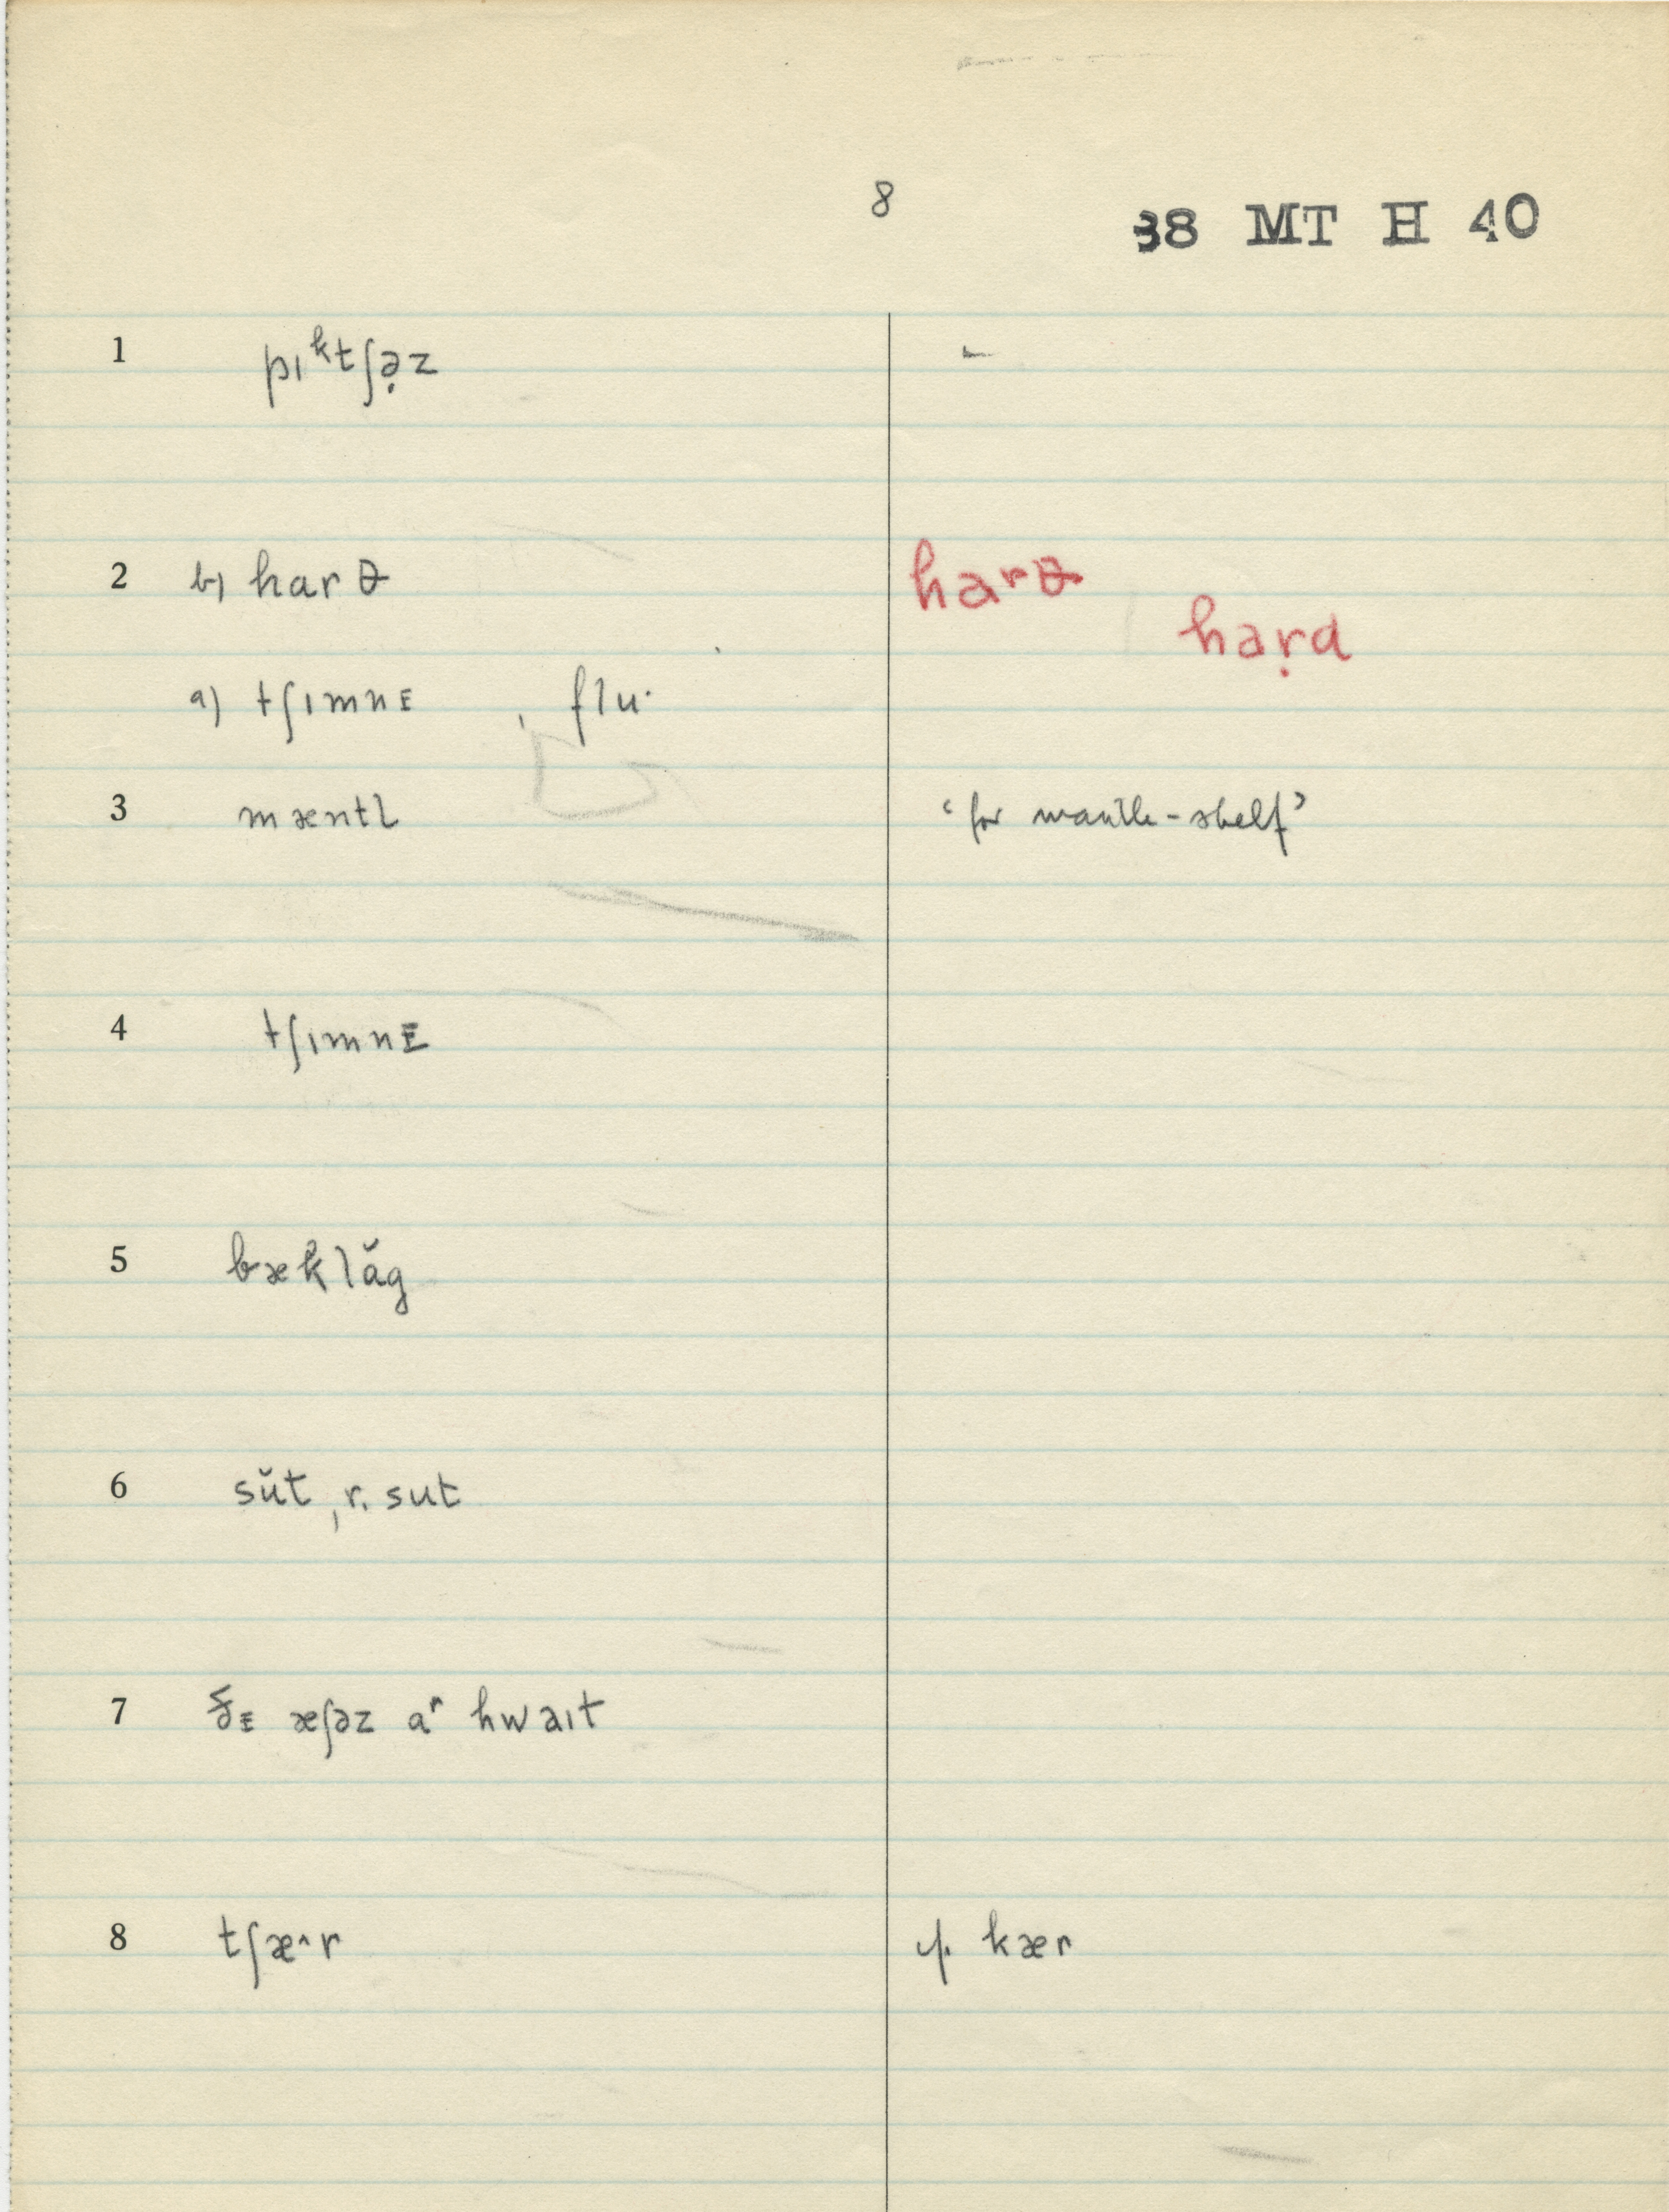 8
38 MT H 40
1 pɪᵏtʃə̣z
2 b) harθ harθ
haṛd
a) tʃɪmnᴇ , flu·
3 mæntl̩ ‘for mantle-shelf’
4 tʃɪmnᴇ
5 bæklăg
6 sŭt, r. sut
7 ðᴇ æʃəz aʳ hwaɪt
8 tʃæ^r cf. kær